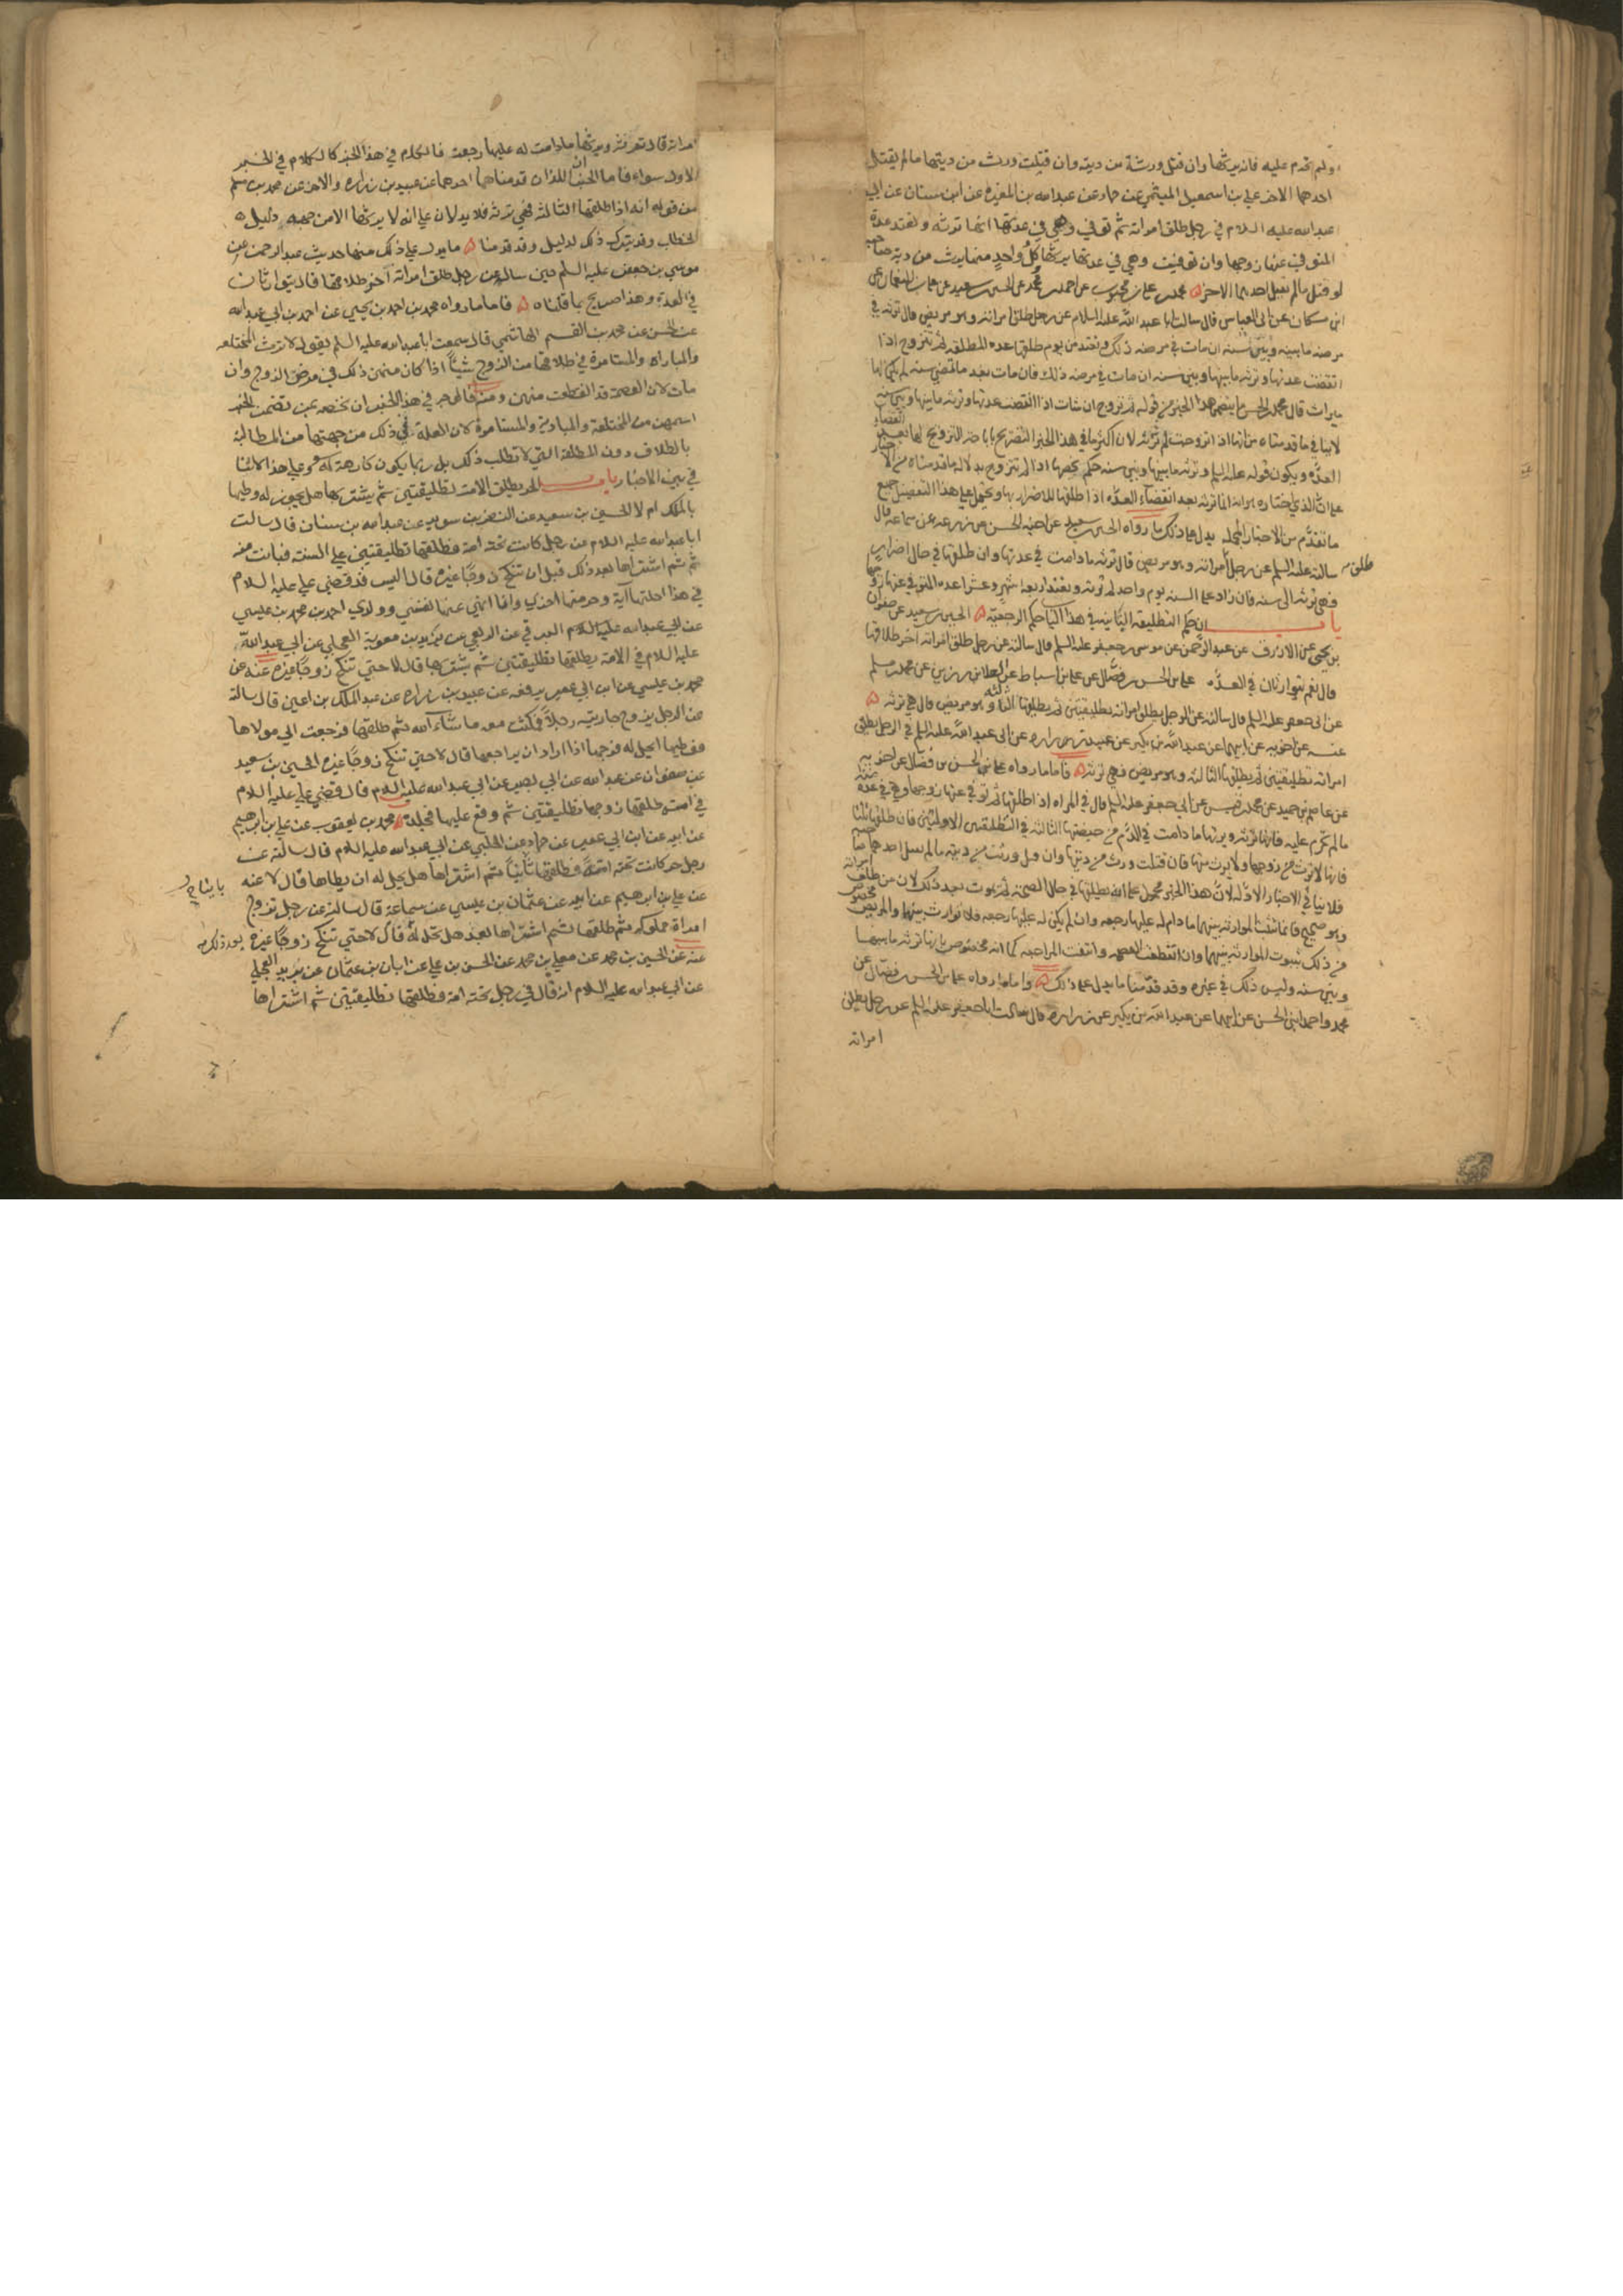 ولم يحرم عليه فانه يرثها وان قتل ورثت من ديته وان قتلت ورث من ديتها ما لم يقتل
احدهما الاخر علي بن اسمعيل الميثمي عن حماد عن عبدالله بن المغيرة عن ابن سنان عن ابي
عبدالله عليه السلام في رجل طلق امراته ثم توفي وهي في عدتها انها ترثه وتعتد عدة
المتوفي عنها زوجها وان توفيت وهي في عدتها يرثها كل واحد منهما يرث من دية صاحبه
لو قتل ما لم يقتل احدهما الاخر محمد بن علي بن محبوب عن احمد بن محمد عن الحسين بن سعيد عن
ابن مسكان عن ابي العباس قال سالت ابا عبد الله عليه السلام عن رجل طلق امراته وهو مريض قال ترثه في
مرضه ما بينه وبين سنة ان مات في مرضه ذلك وتعتد من يوم طلقها عدة المطلقة ثم تتزوج اذا
انقضت عدتها وترثه ما بينها وبين سنة ان مات في مرضه ذلك فان مات بعد ما تمضي سنة لم يكن لها
ميراث قال محمد بن الحسن ما يتضمن هذا الخبر من قوله ثم تتزوج ان شات اذا انقضت عدتها وترثه ما بينها وبين سنة
لا ينافي ما قدمناه من انها اذا تزوجت لم ترثه لان اكثر ما في هذا الخبر التصريح باباحة التزويج لها بعد انقضاء
العدة ويكون قوله عليه السلم وترثه ما بينها وبين سنة حكم يخصها اذا لم تتزوج بدلالة ما قدمناه من الاخبار
على ان الذي اختاره هو انه انما ترثه بعد انقضاء العدة اذا طلقها للاضرار بها ويحمل على هذا التفصيل جميع
ما تقدم من الاخبار المجملة يدل على ذلك ما رواه الحسين بن سعيد عن اخيه الحسن عن زرعة عن سماعة قال
سالته عليه السلم عن رجل امراته وهو مريض قال ترثه ما دامت في عدتها وان طلقها في حال اضرار
طلق
فهي ترثه الى سنة فان زاد على السنة يوم واحد لم ترثه وتعتد اربعة اشهر وعشرا عدة المتوفي عنها زوجها
باب ان حكم التطليقة البائنة في هذا الباب حكم الرجعية الحسين بن سعيد عن صفوان
بن يحيى عن الازرق عن عبد الرحمن عن موسى بن جعفر عليه السلم قال سالته عن رجل طلق امراته اخر طلاقها
قال نعم يتوارثان في العدة علي بن الحسن بن فضال عن علي بن اسباط عن العلا بن رزين عن محمد بن مسلم
عن ابي جعفر عليه السلم قال سالته عن الرجل يطلق امراته تطليقتين ثم يطلقها الثالثة وهو مريض قال هي ترثه
عنه عن اخويه عن ابيهما عن عبد الله بن بكير عن عبيد بن زرارة عن ابي عبد الله عليه السلم في الرجل يطلق
امراته تطليقتين ثم يطلقها الثالثة وهو مريض فهي ترثه فاما ما رواه علي بن الحسن بن فضال عن اخويه
عن عاصم بن حميد عن محمد بن قيس عن ابي جعفر عليه السلم قال في المراة اذا طلقها ثم توفي عنها زوجها وهي في عدة منه
ما لم تحرم عليه فانها ترثه ويرثها ما دامت في الدم من حيضتها الثالثة في التطليقتين الاوليين فان طلقها ثلثا
فانها لا ترث من زوجها ولا يرث منها فان قتلت ورث من ديتها وان قتل ورثت من ديته ما لم يقتل احدهما صاحبه
فلا ينافي الاخبار الاولة لان هذا الخبر محمول على انه يطلقها في حال الصحة ثم يموت بعد ذلك لان من طلق امراته
وهو صحيح فانما تثبت الموارثة بينهما ما دام له عليها رجعة وان لم يكن له عليها رجعة فلا توارث بينهما والمريض مخصوص
من ذلك بثبوت الموارثة بينهما وان انقطعت العصمة وانتفت المراجعة كما انه مخصوص بانها ترثه ما بينها
وبين سنة وليس ذلك في غيره وقد قدمنا ما يدل على ذلك واما ما رواه علي بن الحسن بن فضال عن
محمد واحمد ابني الحسن عن ابيهما عن عبد الله بن بكير عن زرارة قال سالت ابا جعفر عليه السلم عن رجل يطلق
امراته
امراته قال ترثه ويرثها ما دامت له عليها رجعة فالكلام في هذا الخبر كالكلام في الخبر
الاول سواء فاما الخبران اللذان قدمناهما احدهما عن عبيد بن زرارة والاخر عن محمد بن مسلم
من قوله انه اذا طلقها الثالثة فهي ترثه فلا يدلان على انه لا يرثها الا من جهة دليل
الخطاب وقد يترك ذلك لدليل وقد قدمنا ما يدل على ذلك منها حديث عبد الرحمن عن
موسى بن جعفر عليه السلم حين ساله عن رجل طلق امراته اخر طلاقها قال يتوارثان
في العدة وهذا صريح بما قلناه فاما ما رواه محمد بن احمد بن يحيى عن احمد بن ابي عبدالله
عن الحسن عن محمد بن القسم الهاشمي قال سمعت ابا عبدالله عليه السلم يقول لا ترث المختلعة
والمباراة والمستامرة في طلاقها من الزوج شيئا اذا كان منهن ذلك في مرض الزوج وان
مات لان العصمة قد انقطعت منهن ومنه فالوجه في هذا الخبر ان نخصه بمن تضمن الخبر
اسمهن من المختلعة والمبارية والمستامرة لان العلة في ذلك من جهتها من المطالبة
بالطلاق دون المطلقة التي لا تطلب ذلك بل ربما يكون كارهة له وعلى هذا لا تنافي
في بين الاخبار باب الحر يطلق الامة تطليقتين ثم يشتريها هل يجوز له وطيها
بالملك ام لا الحسين بن سعيد عن النضر بن سويد عن عبدالله بن سنان قال سالت
ابا عبدالله عليه السلام عن رجل كانت تحته امة فطلقها تطليقتين على السنة فبانت منه
ثم اشتراها بعد ذلك قبل ان تنكح زوجا غيره قال اليس قد قضى علي عليه السلام
في هذا احلتها آية وحرمتها اخرى وانا انهي عنها نفسي وولدي احمد بن محمد بن عيسى
عن البرقي عن الربعي عن بريد بن معوية العجلي عن ابي عبدالله
عليه السلام في الامة يطلقها تطليقتين ثم يشتريها قال لا حتى تنكح زوجا غيره عنه عن
محمد بن عيسى عن ابن ابي عمير يرفعه عن عبيد بن زرارة عن عبد الملك بن اعين قال سالته
عن الرجل يزوج جاريته رجلا فمكثت معه ما شاء الله ثم طلقها فرجعت الى مولاها
فوطيها ايحل له فرجها اذا اراد ان يراجعها قال لا حتى تنكح زوجا غيره الحسين بن سعيد
عن صفوان عن عبدالله عن ابي بصير عن ابي عبدالله عليه السلام قال قضى علي عليه السلام
في امة طلقها زوجها تطليقتين ثم وقع عليها فجلده محمد بن يعقوب عن علي بن ابراهيم
عن ابيه عن ابن ابي عمير عن حماد عن الحلبي عن ابي عبدالله عليه السلام قال سالته عن
رجل حر كانت تحته امة فطلقها بائنا ثم اشتراها هل يحل له ان يطاها قال لا عنه
عن علي بن ابراهيم عن ابيه عن عثمان بن عيسى عن سماعة قال سالته عن رجل تزوج
امراة مملوكة ثم طلقها ثم اشتراها بعد هل تحل له قال لا حتى تنكح زوجا غيره
عنه عن الحسين بن محمد عن معلى بن محمد عن الحسن بن علي عن ابان بن عثمان عن بريد العجلي
عن ابي عبدالله عليه السلام انه قال في رجل تحته امة فطلقها تطليقتين ثم اشتراها